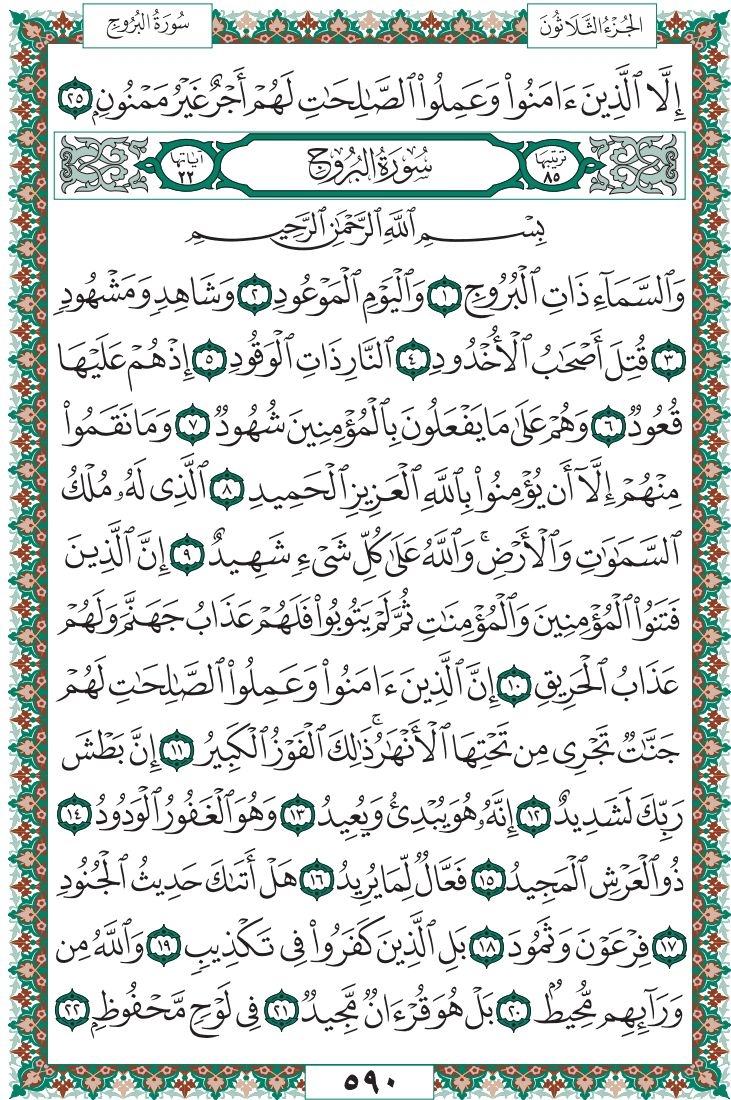 سُورَةُ البُرُوجِ
الجُزْءُ الثَّلَاثُونَ
إِلَّا ٱلَّذِينَ ءَامَنُواْ وَعَمِلُواْ ٱلصَّٰلِحَٰتِ لَهُمْ أَجْرٌ غَيْرُ مَمْنُونِۭ ٢٥
ترتيبها ٨٥ سُورَةُ البُرُوجِ آياتها ٢٢
بِسْمِ ٱللَّهِ ٱلرَّحْمَٰنِ ٱلرَّحِيمِ
وَٱلسَّمَآءِ ذَاتِ ٱلْبُرُوجِ ١ وَٱلْيَوْمِ ٱلْمَوْعُودِ ٢ وَشَاهِدٖ وَمَشْهُودٖ
٣ قُتِلَ أَصْحَٰبُ ٱلْأُخْدُودِ ٤ ٱلنَّارِ ذَاتِ ٱلْوَقُودِ ٥ إِذْ هُمْ عَلَيْهَا
قُعُودٞ ٦ وَهُمْ عَلَىٰ مَا يَفْعَلُونَ بِٱلْمُؤْمِنِينَ شُهُودٞ ٧ وَمَا نَقَمُواْ
مِنْهُمْ إِلَّآ أَن يُؤْمِنُواْ بِٱللَّهِ ٱلْعَزِيزِ ٱلْحَمِيدِ ٨ ٱلَّذِى لَهُۥ مُلْكُ
ٱلسَّمَٰوَٰتِ وَٱلْأَرْضِۚ وَٱللَّهُ عَلَىٰ كُلِّ شَىْءٖ شَهِيدٌ ٩ إِنَّ ٱلَّذِينَ
فَتَنُواْ ٱلْمُؤْمِنِينَ وَٱلْمُؤْمِنَٰتِ ثُمَّ لَمْ يَتُوبُواْ فَلَهُمْ عَذَابُ جَهَنَّمَ وَلَهُمْ
عَذَابُ ٱلْحَرِيقِ ١٠ إِنَّ ٱلَّذِينَ ءَامَنُواْ وَعَمِلُواْ ٱلصَّٰلِحَٰتِ لَهُمْ
جَنَّٰتٞ تَجْرِى مِن تَحْتِهَا ٱلْأَنْهَٰرُۚ ذَٰلِكَ ٱلْفَوْزُ ٱلْكَبِيرُ ١١ إِنَّ بَطْشَ
رَبِّكَ لَشَدِيدٌ ١٢ إِنَّهُۥ هُوَ يُبْدِئُ وَيُعِيدُ ١٣ وَهُوَ ٱلْغَفُورُ ٱلْوَدُودُ ١٤
ذُو ٱلْعَرْشِ ٱلْمَجِيدُ ١٥ فَعَّالٞ لِّمَا يُرِيدُ ١٦ هَلْ أَتَىٰكَ حَدِيثُ ٱلْجُنُودِ
١٧ فِرْعَوْنَ وَثَمُودَ ١٨ بَلِ ٱلَّذِينَ كَفَرُواْ فِى تَكْذِيبٖ ١٩ وَٱللَّهُ مِن
وَرَآئِهِم مُّحِيطُۢ ٢٠ بَلْ هُوَ قُرْءَانٞ مَّجِيدٞ ٢١ فِى لَوْحٖ مَّحْفُوظِۭ ٢٢
٥٩٠